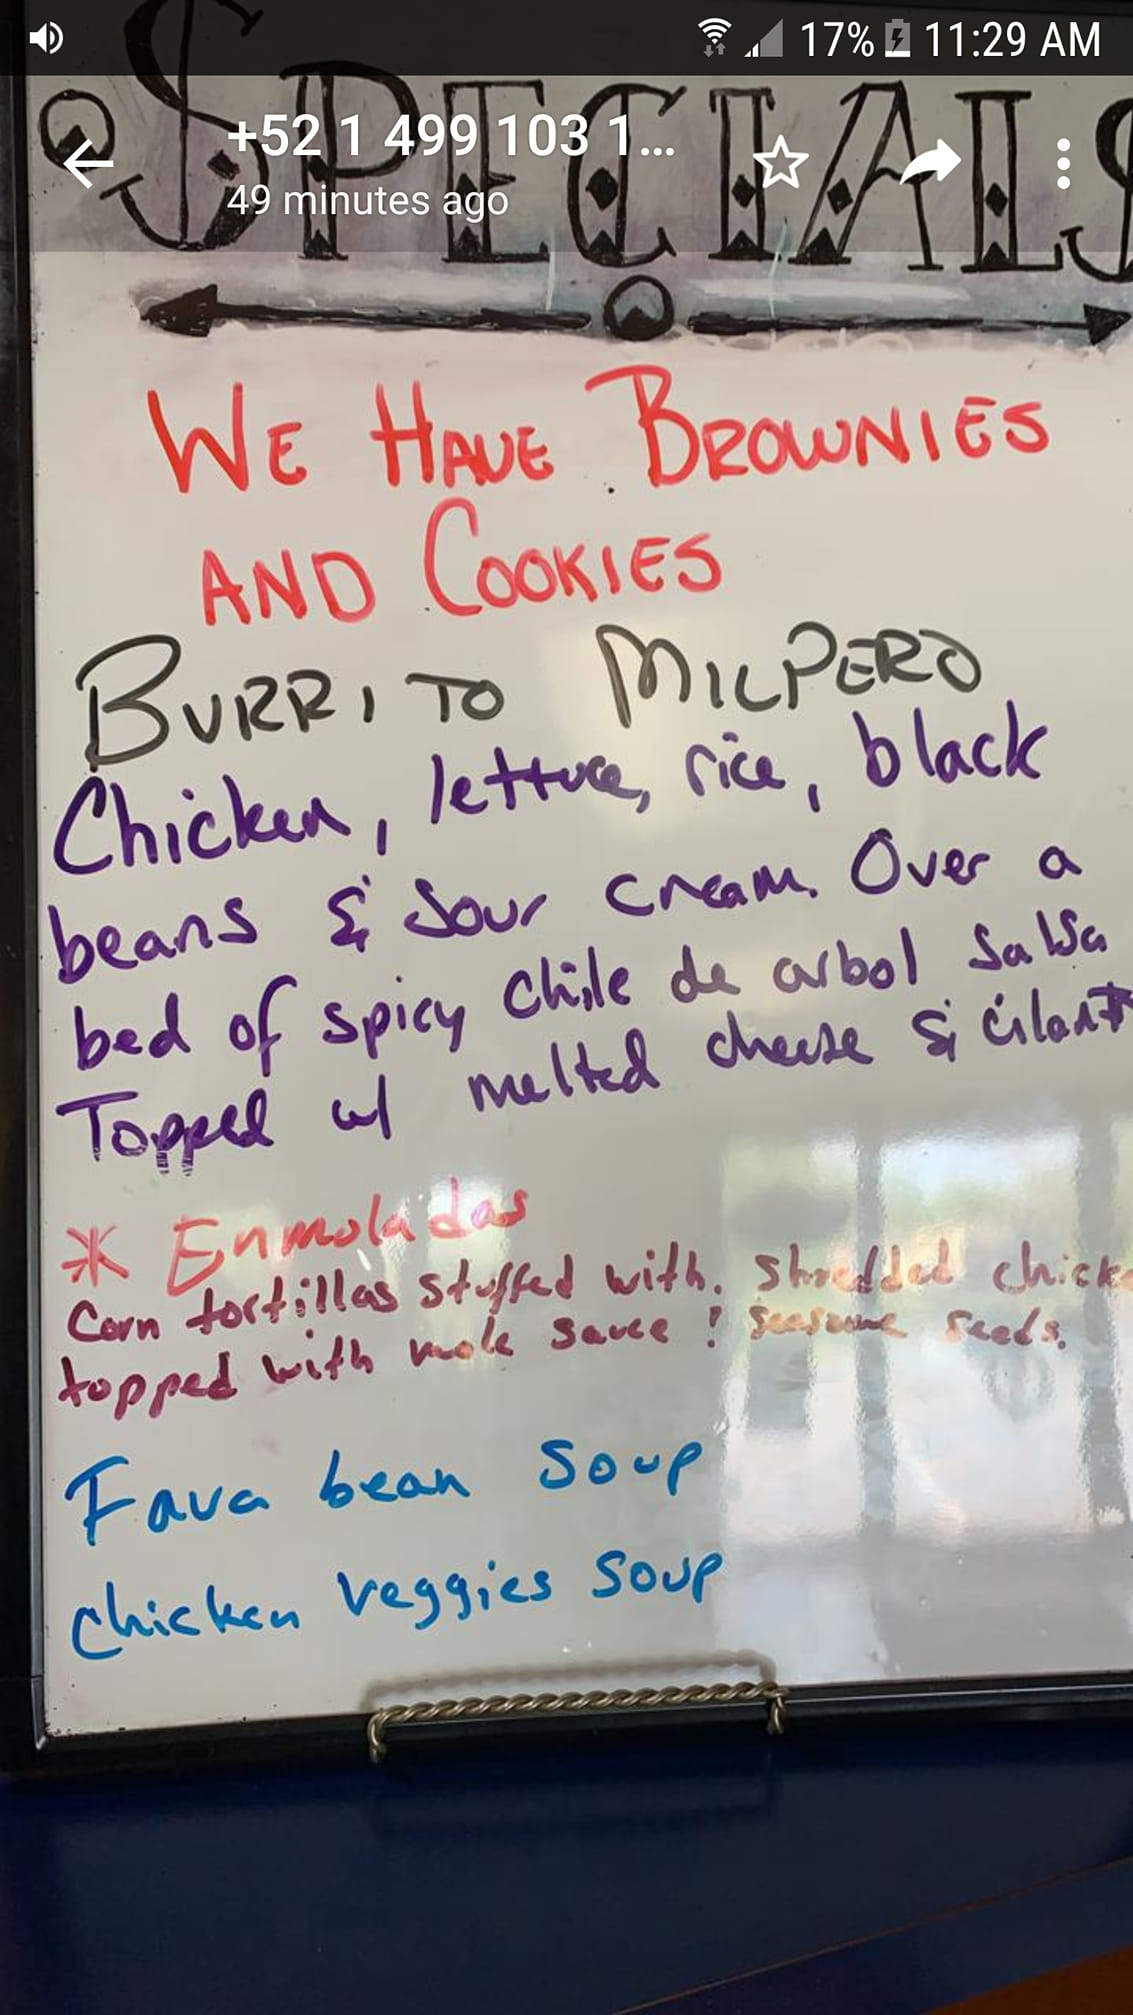 17% 11:29 AM
SPECIALS
+52 1 499 103 1...
49 minutes ago
WE HAVE BROWNIES
AND COOKIES
BURRITO MILPERO
Chicken, lettuce, rice, black
beans & Sour cream. Over a
bed of spicy chile de arbol Salsa
Topped w/ melted cheese & cilant
* Enmoladas
Corn tortillas stuffed with. Shredded chick
topped with mole sauce ! seasame seeds.
Fava bean soup
chicken veggies soup